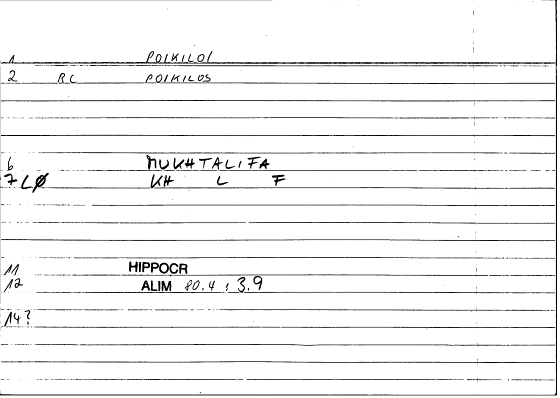 1 POIKILOI
2 RC POIKILOS
6 MUKHTALIFA
7 LØ KH L F
11 HIPPOCR
12 ALIM 80.4 : 3.9
14?